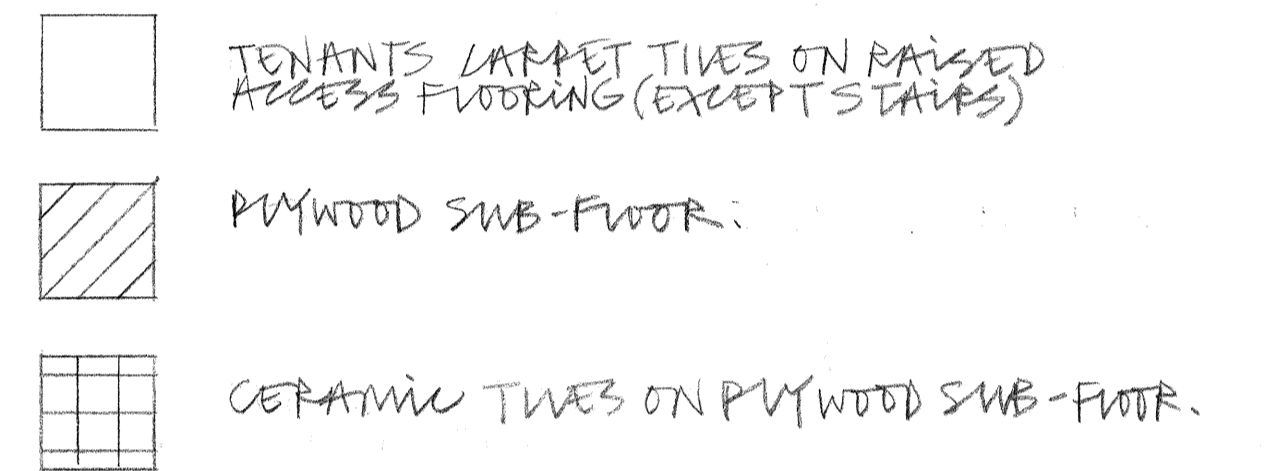 TENANTS CARPET TILES ON RAISED
ACCESS FLOORING (EXCEPT STAIRS)
PLYWOOD SUB-FLOOR.
CERAMIC TILES ON PLYWOOD SUB-FLOOR.